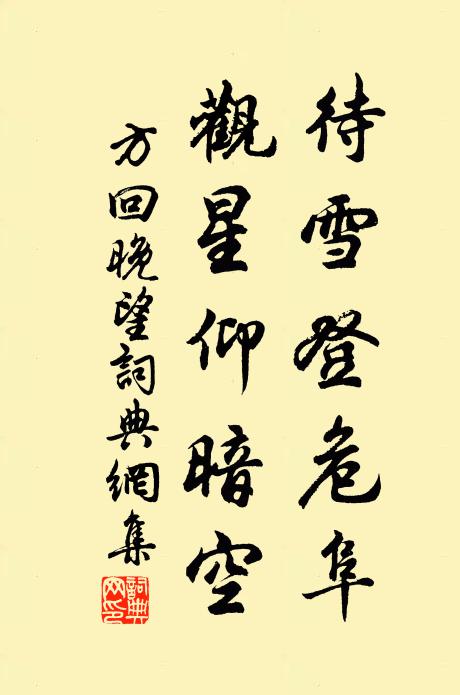 待雪登危阜
觀星仰暗空
方回晚望詞典網集
詞典網印